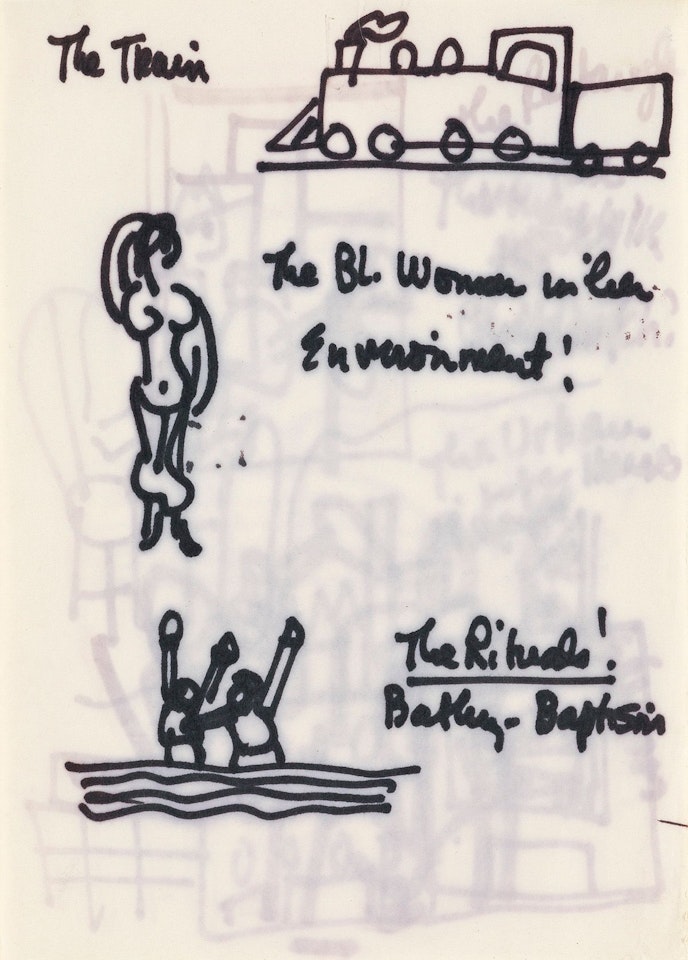 The Train
The Bl. Woman in her
Enveironment!
The Rituals!
Bathing - Baptism